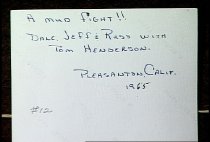 A MUD FIGHT!!
DALE, JEFF & RUSS WITH
TOM HENDERSON.
PLEASANTON, CALIF.
1965
#12